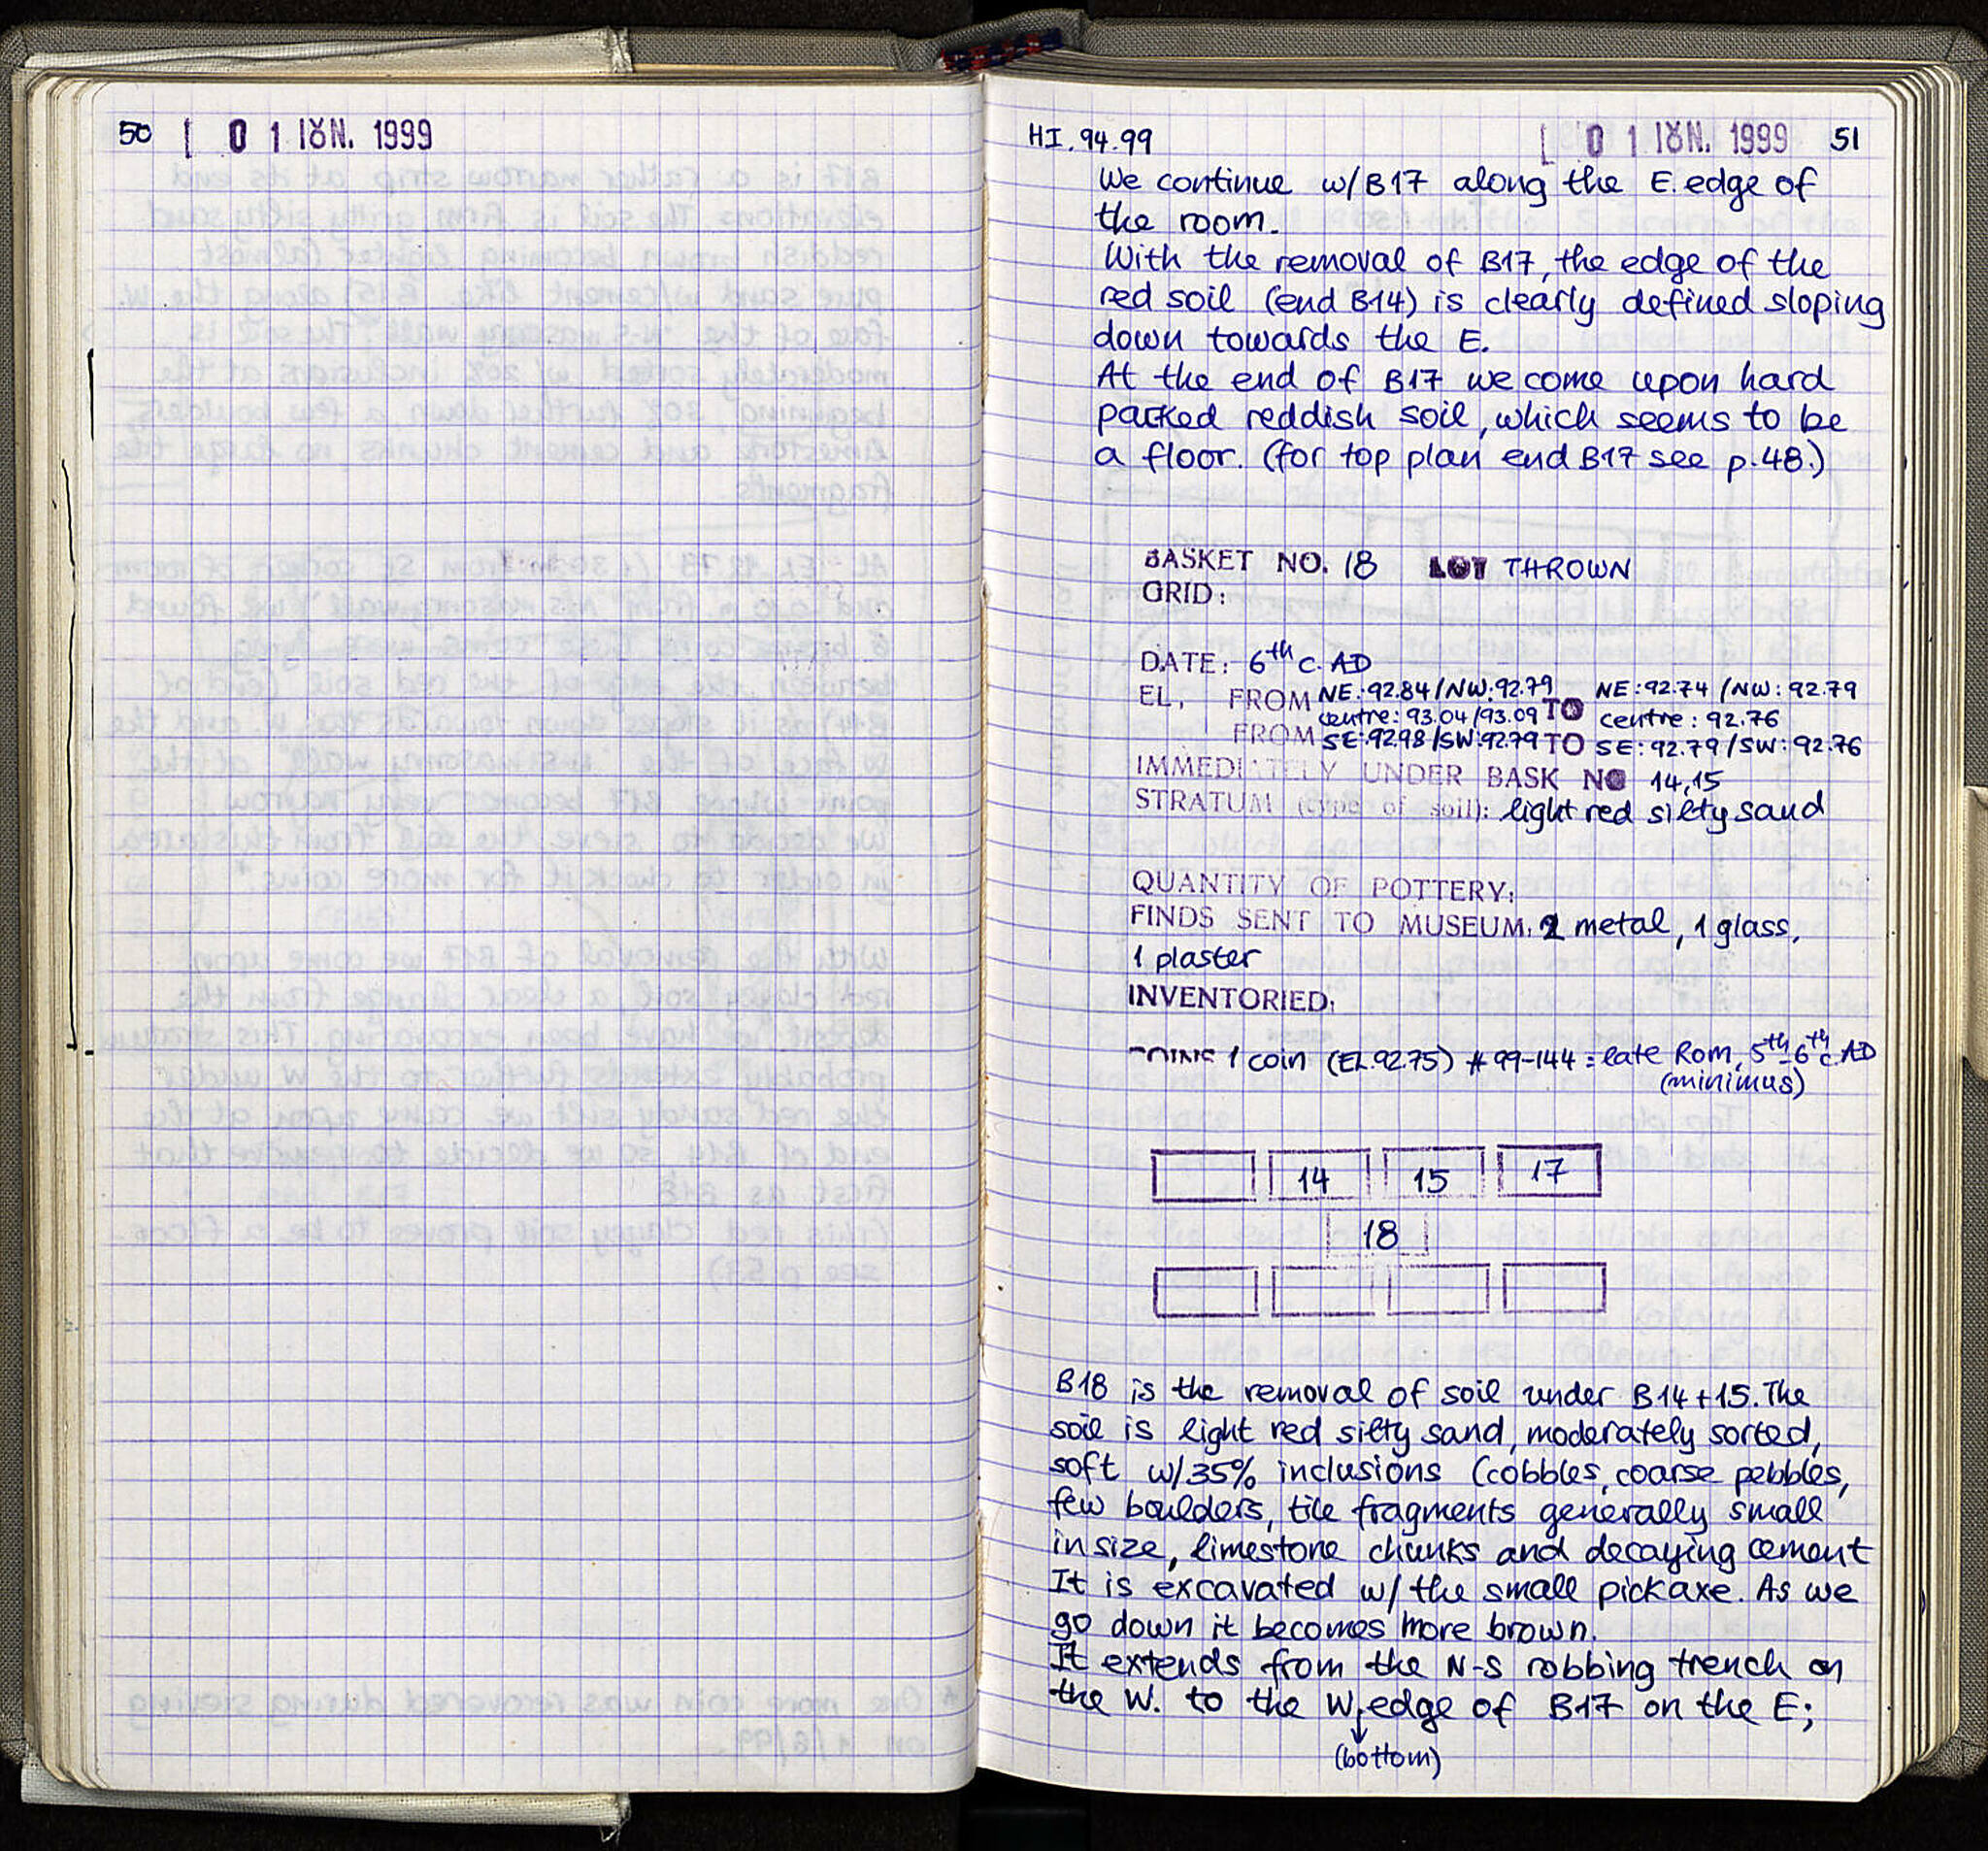 50 [ 0 1 ΙΟΥΝ. 1999
HI. 94.99 [ 0 1 ΙΟΥΝ. 1999 51
We continue w/B17 along the E. edge of
the room.
With the removal of B17, the edge of the
red soil (end B14) is clearly defined sloping
down towards the E.
At the end of B17 we come upon hard
packed reddish soil, which seems to be
a floor. (for top plan end B17 see p.48.)
BASKET NO. 18 LOT THROWN
GRID:
DATE: 6th c. AD
EL, FROM NE:92.84/NW:92.79 TO NE:92.74/NW:92.79
centre: 93.04/93.09 centre: 92.76
FROM SE:92.98/SW:92.79 TO SE:92.79/SW:92.76
IMMEDIATELY UNDER BASK NO 14,15
STRATUM (type of soil): light red silty sand
QUANTITY OF POTTERY:
FINDS SENT TO MUSEUM: 2 metal, 1 glass,
1 plaster
INVENTORIED:
COINS 1 coin (EL.92.75) # 99-144 = late Rom, 5th-6th c. AD
(minimus)
14 15 17
18
B18 is the removal of soil under B14+15. The
soil is light red silty sand, moderately sorted,
soft w/35% inclusions (cobbles, coarse pebbles,
few boulders, tile fragments generally small
in size, limestone chunks and decaying cement
It is excavated w/ the small pickaxe. As we
go down it becomes more brown.
It extends from the N-S robbing trench on
the W. to the W. edge of B17 on the E;
(bottom)